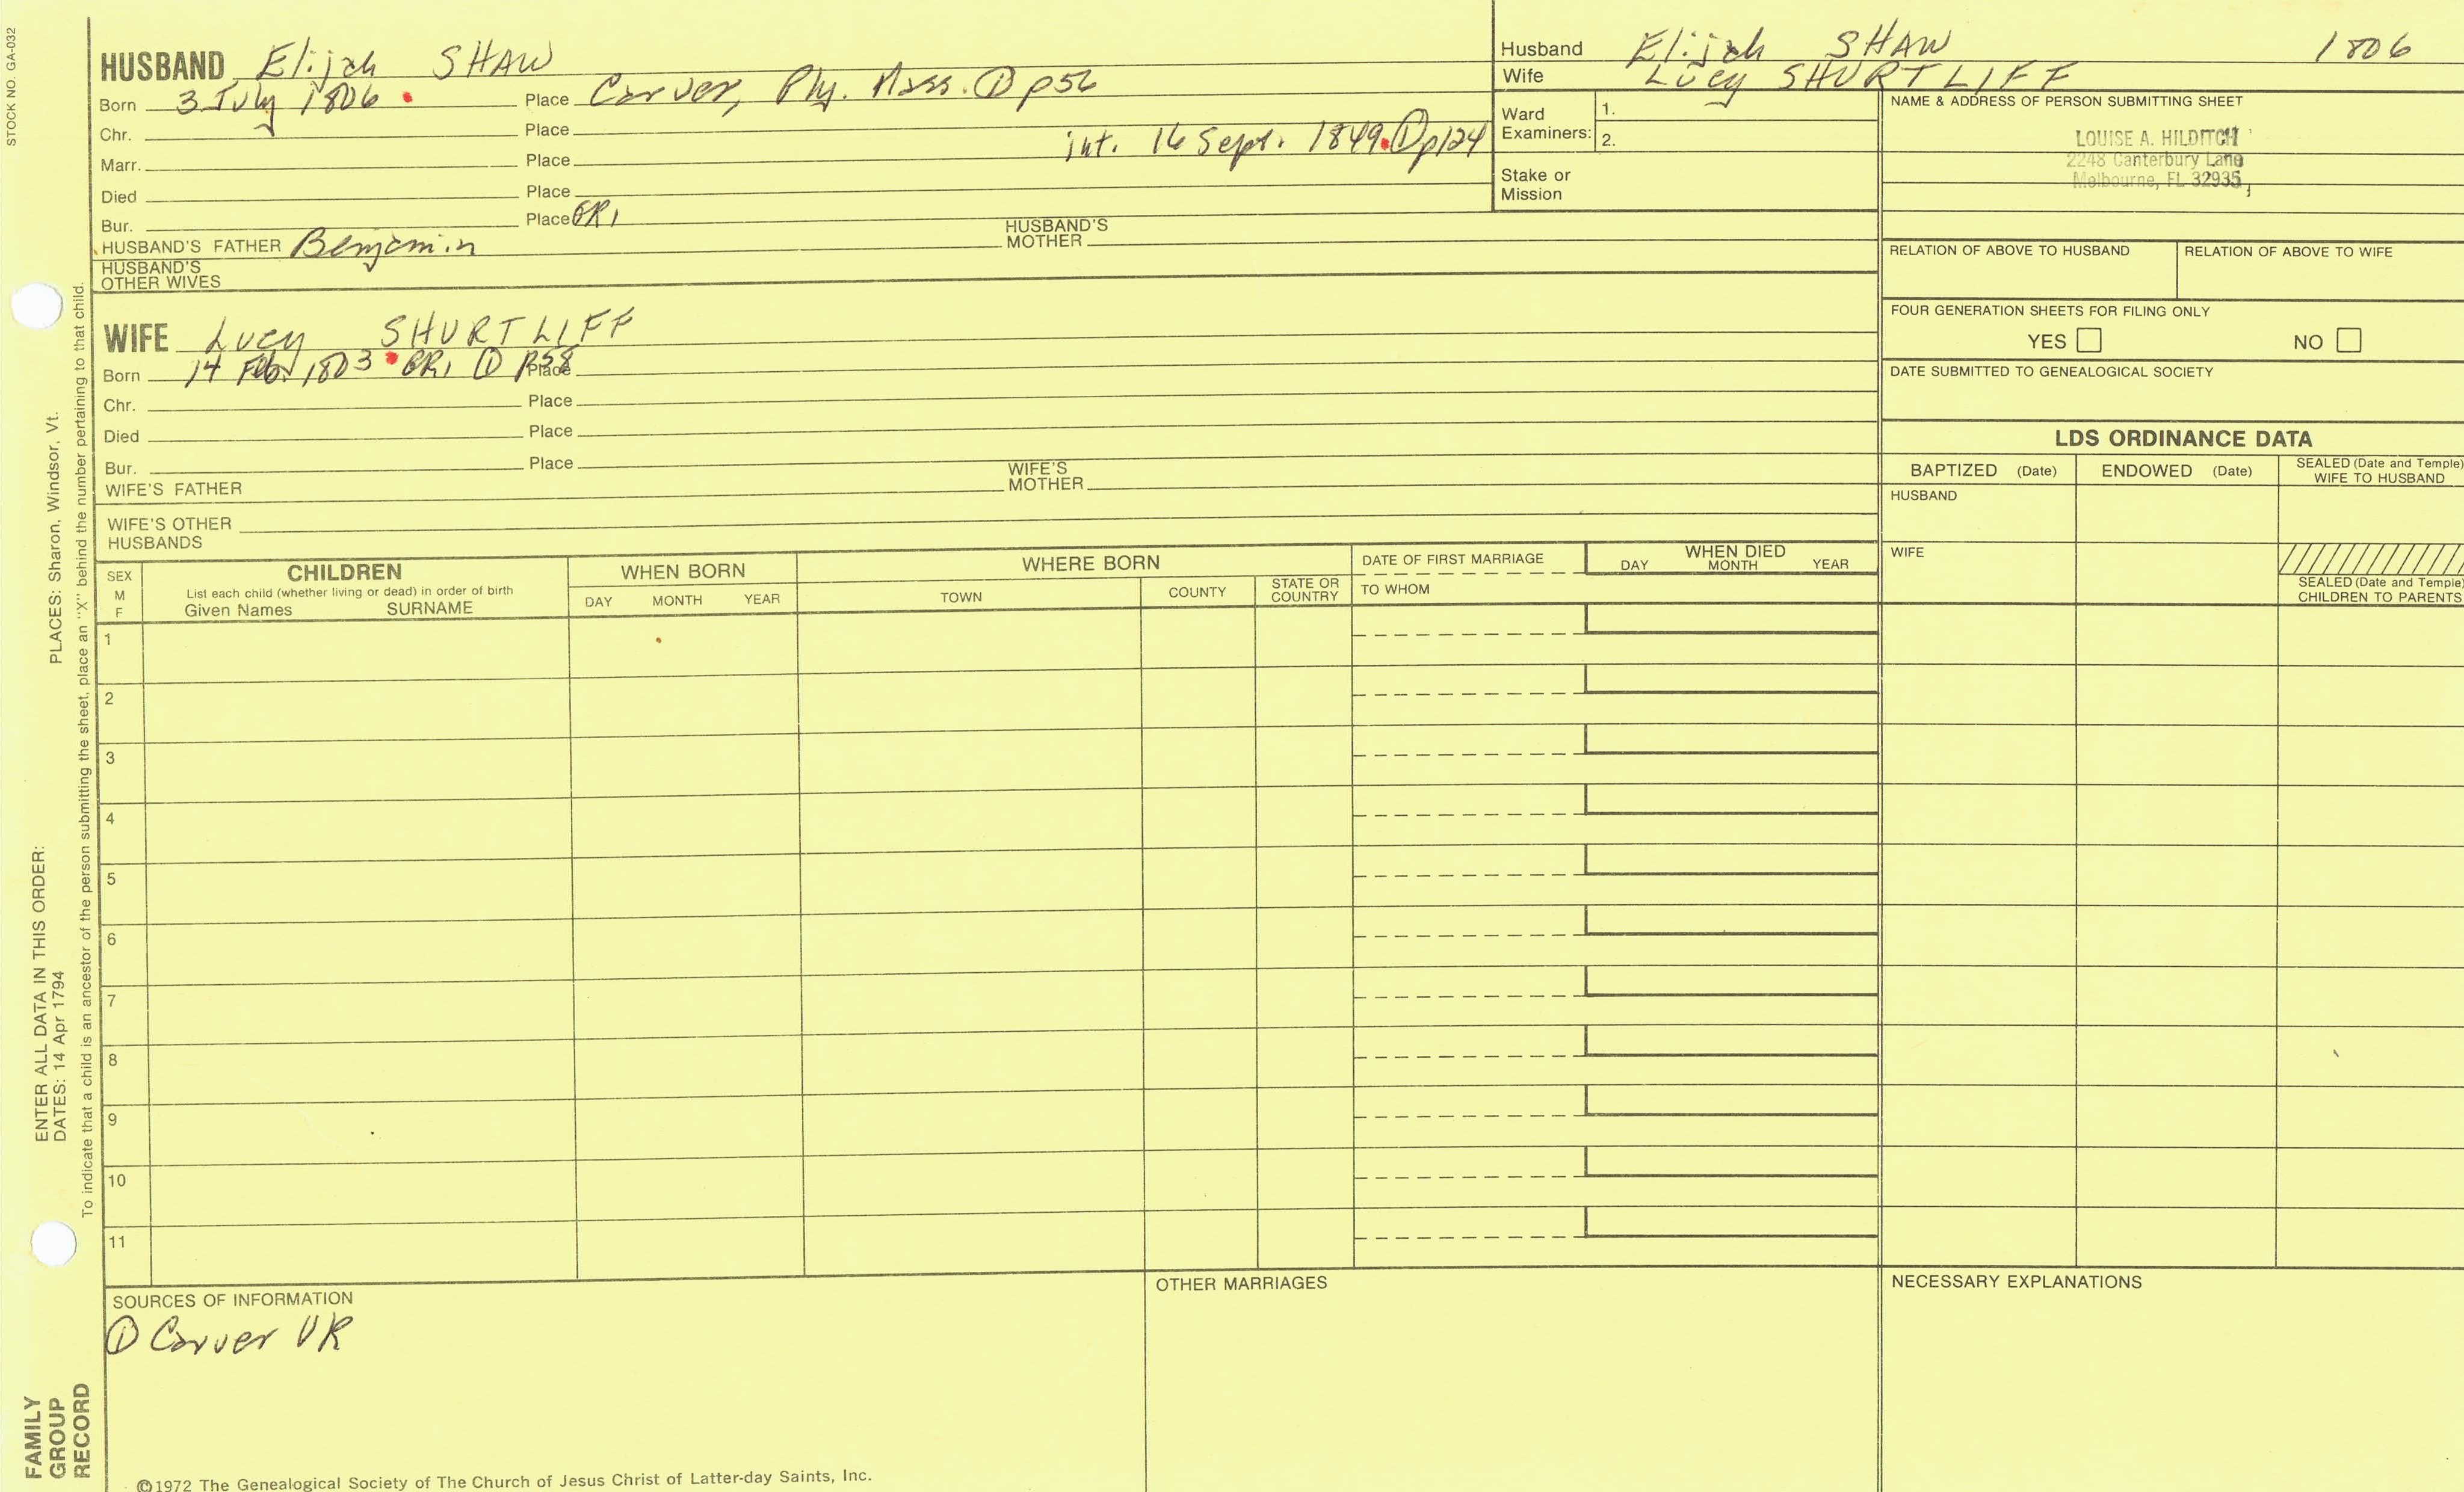 STOCK NO. GA-032
HUSBAND Elijah SHAW
Born 3 July 1806 Place Carver, Ply. Mass. ① p56
Chr. Place
int. 16 Sept. 1849 ① p124
Marr. Place
Died Place
Bur. Place GR1
HUSBAND'S FATHER Benjamin HUSBAND'S MOTHER
HUSBAND'S OTHER WIVES
WIFE Lucy SHURTLIFF
Born 14 Feb. 1803 GR1 ① p58 Place
Chr. Place
Died Place
Bur. Place
WIFE'S FATHER WIFE'S MOTHER
WIFE'S OTHER HUSBANDS
Husband Elijah SHAW 1806
Wife Lucy SHURTLIFF
Ward Examiners: 1.
2.
Stake or Mission
NAME & ADDRESS OF PERSON SUBMITTING SHEET
LOUISE A. HILDITCH
2248 Canterbury Lane
Melbourne, FL 32935
RELATION OF ABOVE TO HUSBAND RELATION OF ABOVE TO WIFE
FOUR GENERATION SHEETS FOR FILING ONLY
YES NO
DATE SUBMITTED TO GENEALOGICAL SOCIETY
LDS ORDINANCE DATA
BAPTIZED (Date) ENDOWED (Date) SEALED (Date and Temple) WIFE TO HUSBAND
HUSBAND
WIFE
SEALED (Date and Temple) CHILDREN TO PARENTS
SEX M F
CHILDREN
List each child (whether living or dead) in order of birth
Given Names SURNAME
WHEN BORN
DAY MONTH YEAR
WHERE BORN
TOWN COUNTY STATE OR COUNTRY
DATE OF FIRST MARRIAGE
TO WHOM
WHEN DIED
DAY MONTH YEAR
1
2
3
4
5
6
7
8
9
10
11
SOURCES OF INFORMATION
① Carver VR
OTHER MARRIAGES
NECESSARY EXPLANATIONS
©1972 The Genealogical Society of The Church of Jesus Christ of Latter-day Saints, Inc.
ENTER ALL DATA IN THIS ORDER:
DATES: 14 Apr 1794
PLACES: Sharon, Windsor, Vt.
To indicate that a child is an ancestor of the person submitting the sheet, place an "X" behind the number pertaining to that child.
FAMILY
GROUP
RECORD